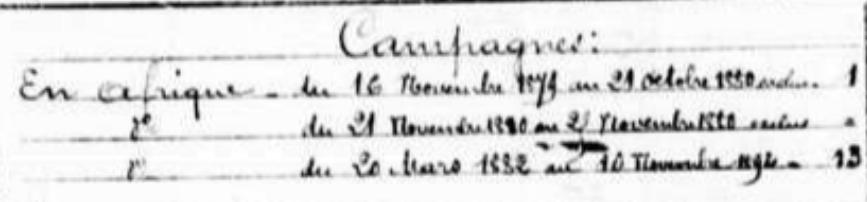 Campagnes:
En afrique - du 16 Novembre 1879 au 21 octobre 1880 exclus. 1
dº du 21 Novembre 1880 au 27 Novembre 1880 exclus "
dº du 20 Mars 1882 au 10 Novembre 1894 - 13